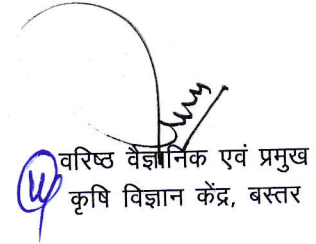 वरिष्ठ वैज्ञानिक एवं प्रमुख
कृषि विज्ञान केंद्र, बस्तर